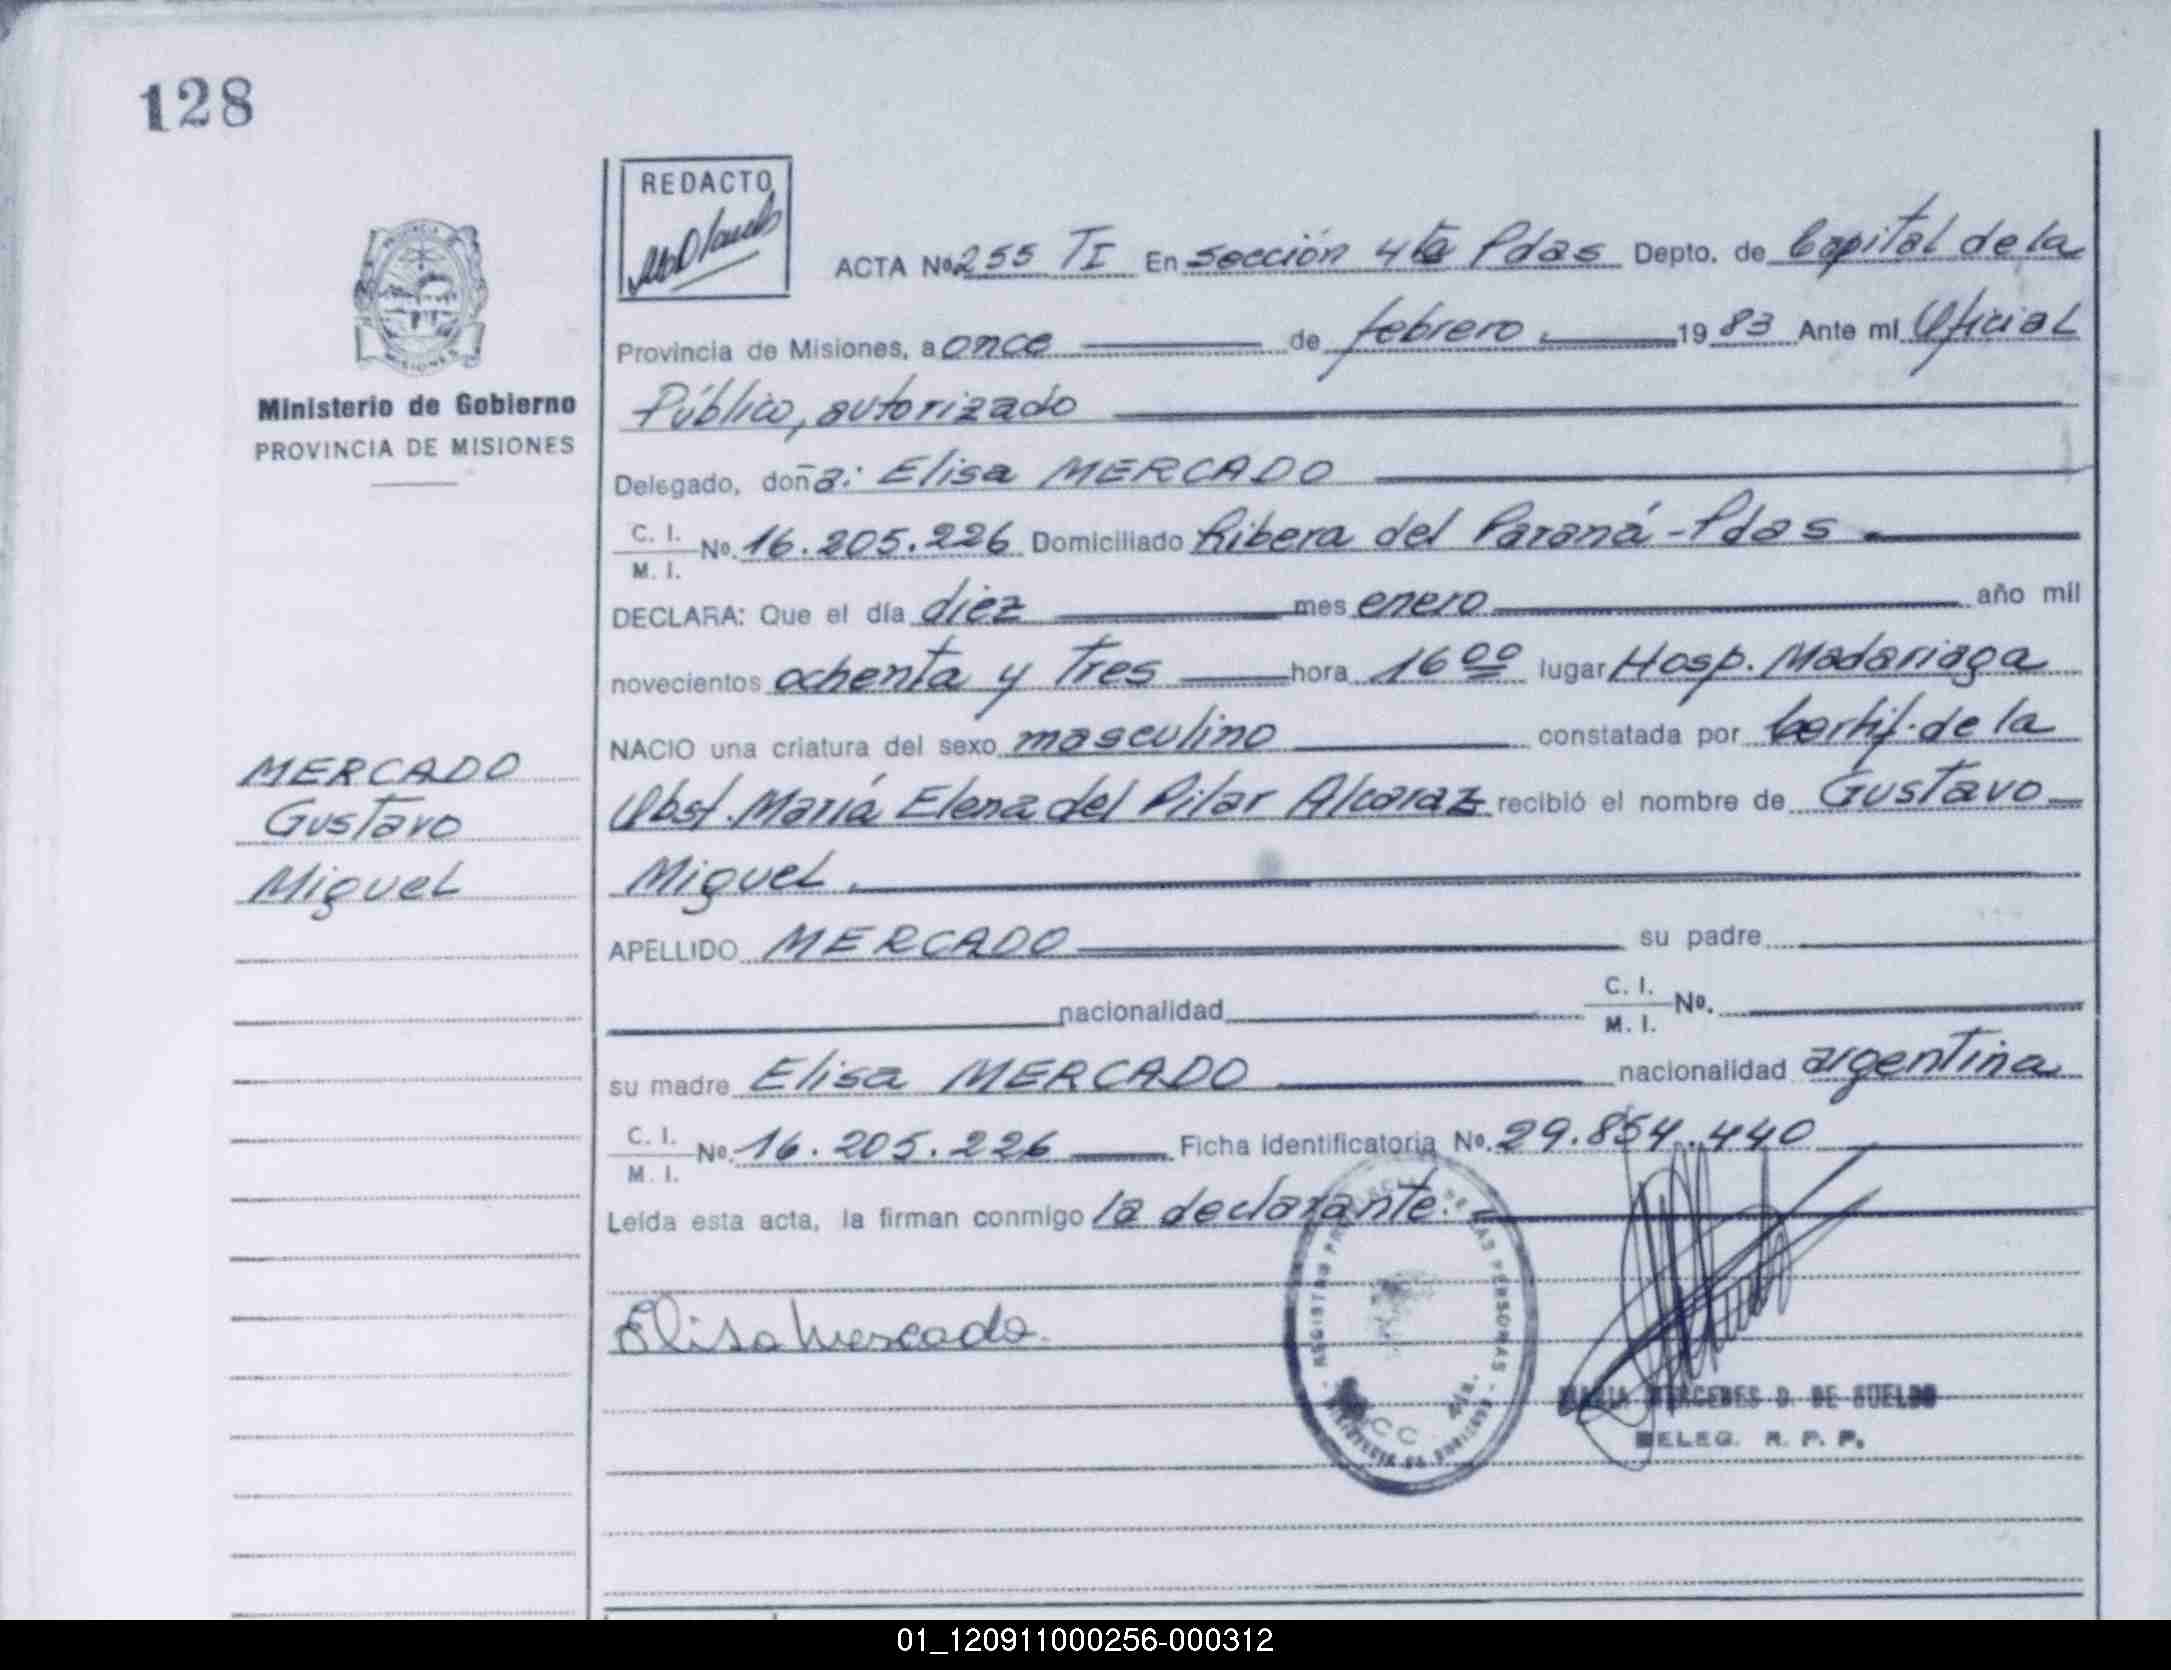 128
REDACTO
ACTA Nº 255 TI En sección 4ta Pdas Depto. de Capital de la
Provincia de Misiones, a once de febrero 1983 Ante mí Oficial
Ministerio de Gobierno
PROVINCIA DE MISIONES
Público, autorizado
Delegado, doña: Elisa MERCADO
C. I.
M. I. Nº. 16.205.226 Domiciliado Ribera del Paraná-Pdas
DECLARA: Que el día diez mes enero año mil
novecientos ochenta y Tres hora 16 00 lugar Hosp. Madariaga
NACIO una criatura del sexo masculino constatada por Certif. de la
MERCADO
Gustavo
Miguel
Obst. María Elena del Pilar Alcaraz recibió el nombre de Gustavo
Miguel.
APELLIDO MERCADO su padre
nacionalidad C. I.
M. I. Nº.
su madre Elisa MERCADO nacionalidad argentina
C. I.
M. I. Nº. 16.205.226 Ficha Identificatoria Nº. 29.854.440
Leída esta acta, la firman conmigo la declarante.
Elisa Mercado.
REGISTRO PROVINCIAL DE LAS PERSONAS
MARIA MERCEDES D. DE SUELDO
DELEG. R. P. P.
01_120911000256-000312